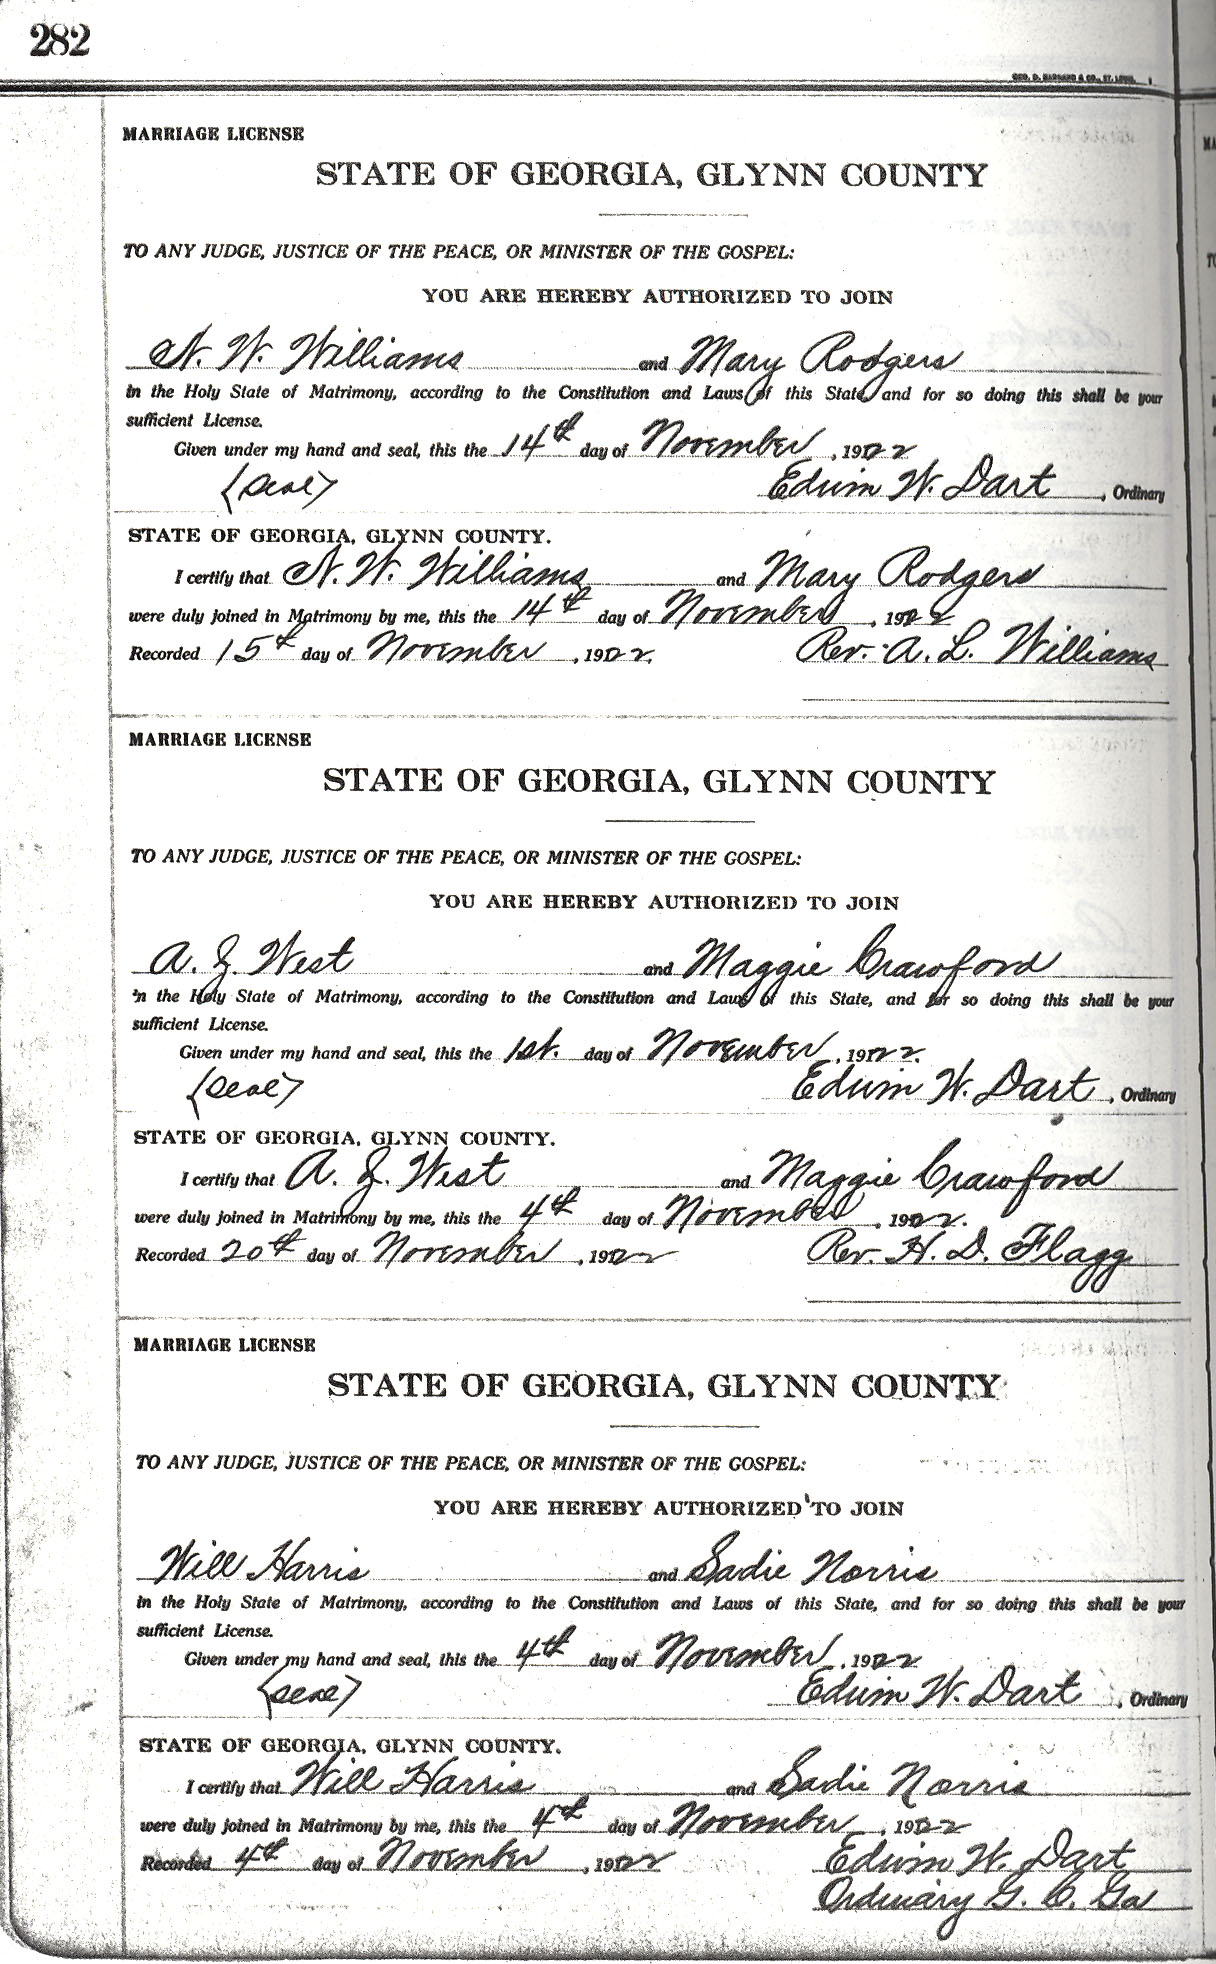 282
GEO. D. BARNARD & CO., ST. LOUIS.
MARRIAGE LICENSE
STATE OF GEORGIA, GLYNN COUNTY
TO ANY JUDGE, JUSTICE OF THE PEACE, OR MINISTER OF THE GOSPEL:
YOU ARE HEREBY AUTHORIZED TO JOIN
N. W. Williams and Mary Rodgers
in the Holy State of Matrimony, according to the Constitution and Laws of this State, and for so doing this shall be your
sufficient License.
Given under my hand and seal, this the 14th day of November, 1922
(Seal) Edwin W. Dart, Ordinary
STATE OF GEORGIA, GLYNN COUNTY.
I certify that N. W. Williams and Mary Rodgers
were duly joined in Matrimony by me, this the 14th day of November, 1922
Recorded 15th day of November, 1922. Rev. A. L. Williams
MARRIAGE LICENSE
STATE OF GEORGIA, GLYNN COUNTY
TO ANY JUDGE, JUSTICE OF THE PEACE, OR MINISTER OF THE GOSPEL:
YOU ARE HEREBY AUTHORIZED TO JOIN
A. J. West and Maggie Crawford
in the Holy State of Matrimony, according to the Constitution and Laws of this State, and for so doing this shall be your
sufficient License.
Given under my hand and seal, this the 1st. day of November, 1922.
(Seal) Edwin W. Dart, Ordinary
STATE OF GEORGIA, GLYNN COUNTY.
I certify that A. J. West and Maggie Crawford
were duly joined in Matrimony by me, this the 4th day of November, 1922.
Recorded 20th day of November, 1922 Rev. H. D. Flagg
MARRIAGE LICENSE
STATE OF GEORGIA, GLYNN COUNTY
TO ANY JUDGE, JUSTICE OF THE PEACE, OR MINISTER OF THE GOSPEL:
YOU ARE HEREBY AUTHORIZED TO JOIN
Will Harris and Sadie Norris
in the Holy State of Matrimony, according to the Constitution and Laws of this State, and for so doing this shall be your
sufficient License.
Given under my hand and seal, this the 4th day of November, 1922
(Seal) Edwin W. Dart, Ordinary
STATE OF GEORGIA, GLYNN COUNTY.
I certify that Will Harris and Sadie Norris
were duly joined in Matrimony by me, this the 4th day of November, 1922
Recorded 4th day of November, 1922 Edwin W. Dart
Ordinary G. C. Ga